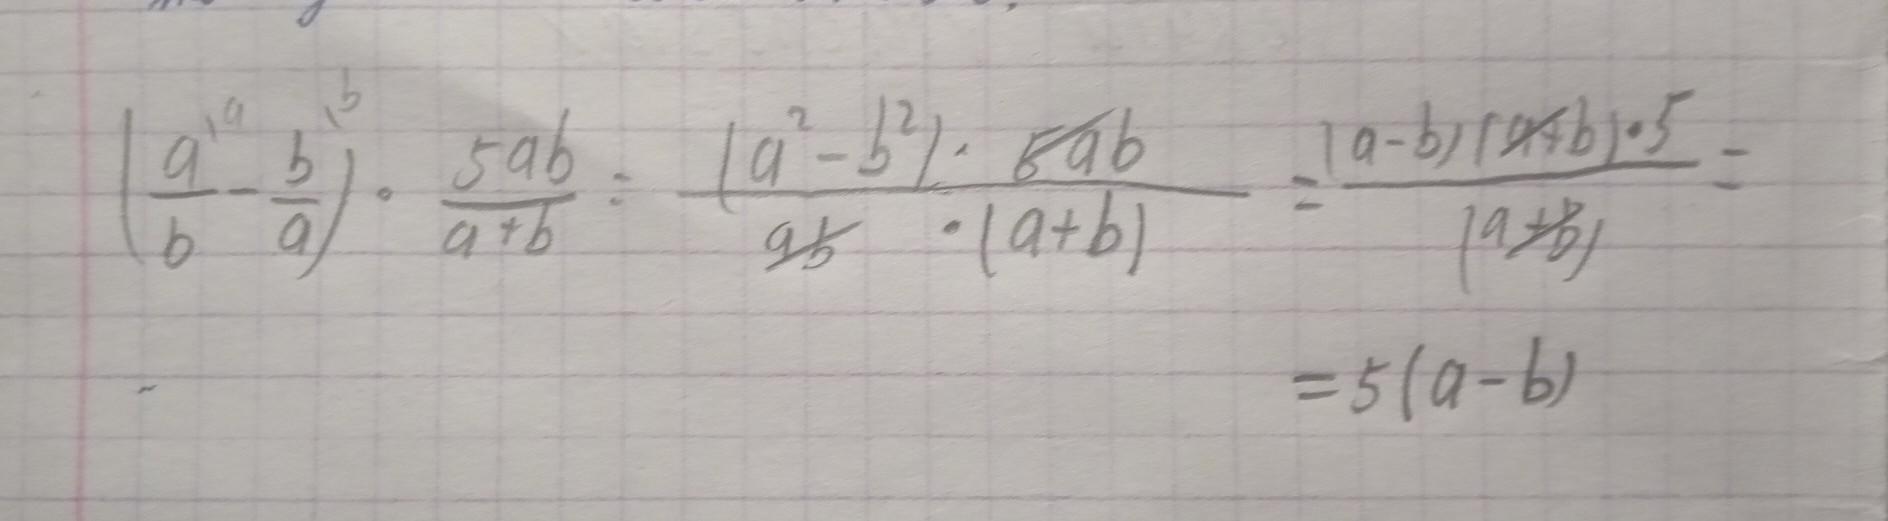 (a/b - b/a) · 5ab/(a+b) = (a² - b²) · 5ab / ab · (a+b) = (a-b)(a+b) · 5 / (a+b) =
= 5(a-b)